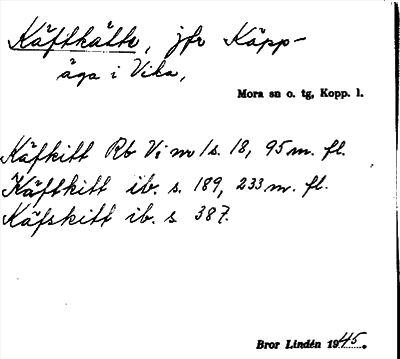 Käftkätte, jfr Käpp-
äga i Vika,
Mora sn o. tg, Kopp. l.
Käfkitt Rb V; m/s. 18, 95 m. fl.
Käftkitt ib. s. 189, 233 m. fl.
Käfskitt ib. s 387.
Bror Lindén 1945.